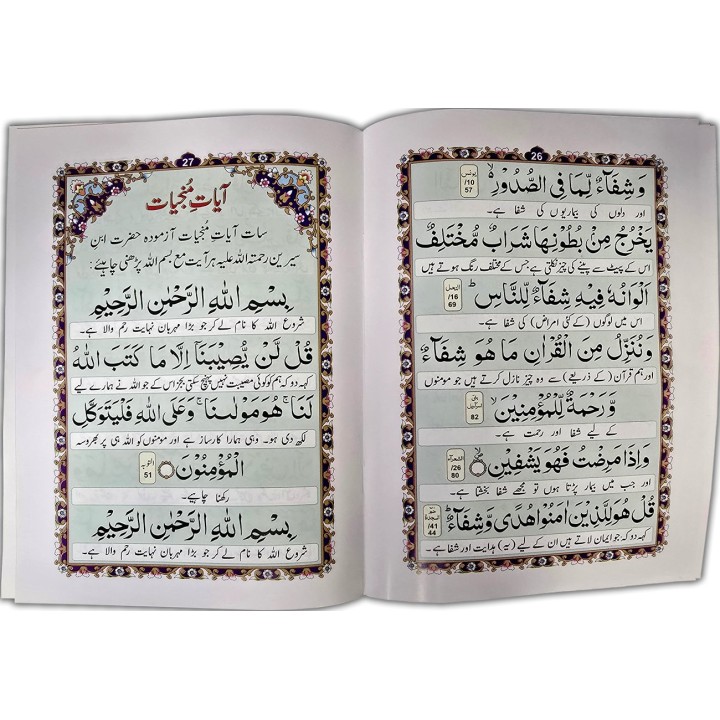 26
وَشِفَآءٌ لِّمَا فِی الصُّدُوْرِ ۙ
یونس
10/
57
اور دلوں کی بیماریوں کی شفا ہے۔
یَخْرُجُ مِنْۢ بُطُوْنِهَا شَرَابٌ مُّخْتَلِفٌ
اس کے پیٹ سے پینے کی چیز نکلتی ہے جس کے مختلف رنگ ہوتے ہیں
اَلْوَانُهٗ فِیْهِ شِفَآءٌ لِّلنَّاسِ ؕ
النحل
16/
69
اس میں لوگوں (کے کئی امراض) کی شفا ہے۔
وَنُنَزِّلُ مِنَ الْقُرْاٰنِ مَا هُوَ شِفَآءٌ
اور ہم قرآن (کے ذریعے) سے وہ چیز نازل کرتے ہیں جو مومنوں
وَّرَحْمَةٌ لِّلْمُؤْمِنِیْنَ ۙ
بنی اسرآئیل
82
کے لیے شفا اور رحمت ہے۔
وَاِذَا مَرِضْتُ فَهُوَ یَشْفِیْنِ
الشعرآء
26/
80
اور جب میں بیمار پڑتا ہوں تو مجھے شفا بخشتا ہے۔
قُلْ هُوَ لِلَّذِیْنَ اٰمَنُوْا هُدًی وَّشِفَآءٌ ؕ
حٰم السجدة
41/
44
کہہ دو کہ جو ایمان لاتے ہیں ان کے لیے (یہ) ہدایت اور شفا ہے۔
27
آیاتِ مُنجیات
سات آیاتِ مُنجیات آزمودہ حضرت ابن
سیرین رحمتہ اللہ علیہ ہر آیت مع بسم اللہ پڑھنی چاہیے:
بِسْمِ اللّٰهِ الرَّحْمٰنِ الرَّحِیْمِ
شروع اللہ کا نام لے کر جو بڑا مہربان نہایت رحم والا ہے۔
قُلْ لَّنْ یُّصِیْبَنَاۤ اِلَّا مَا كَتَبَ اللّٰهُ
کہہ دو کہ ہم کو کوئی مصیبت نہیں پہنچ سکتی بجز اس کے جو اللہ نے ہمارے لیے
لَنَا ۚ هُوَ مَوْلٰىنَا ۚ وَعَلَی اللّٰهِ فَلْیَتَوَكَّلِ
لکھ دی ہو۔ وہی ہمارا کارساز ہے اور مومنوں کو اللہ ہی پر بھروسہ
الْمُؤْمِنُوْنَ
التوبہ
51
رکھنا چاہیے۔
بِسْمِ اللّٰهِ الرَّحْمٰنِ الرَّحِیْمِ
شروع اللہ کا نام لے کر جو بڑا مہربان نہایت رحم والا ہے۔